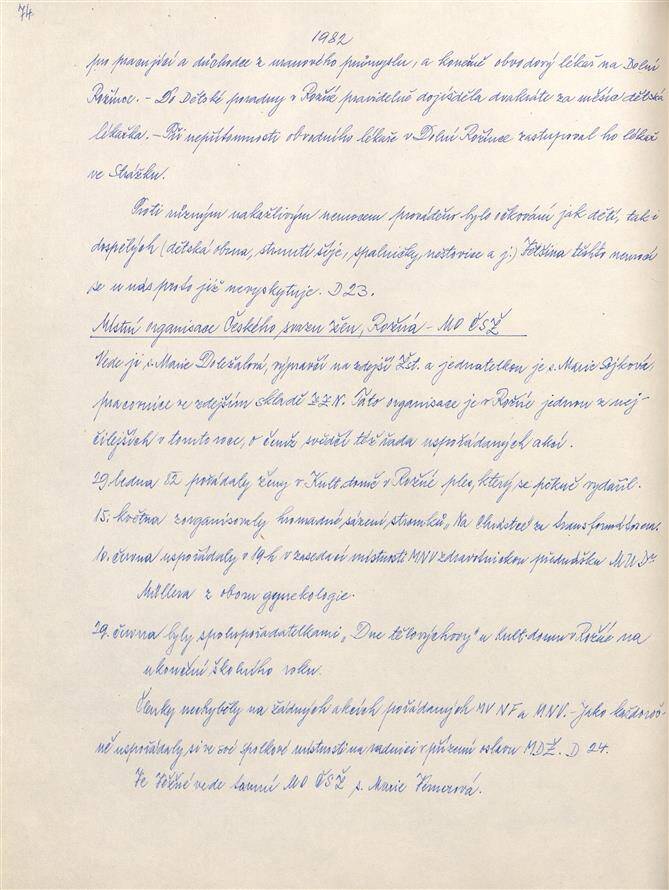 74
1982
pro pracující a důchodce z uranového průmyslu, a konečně obvodový lékař na Dolní
Rožínce. – Do Dětské poradny v Rožné pravidelně dojížděla dvakráte za měsíc dětská
lékařka. – Při nepřítomnosti obvodního lékaře v Dolní Rožínce zastupoval ho lékař
ve Strážku.
Proti různým nakažlivým nemocem prováděno bylo očkování jak dětí, tak i
dospělých (dětská obrna, strnutí šíje, spalničky, neštovice a j.) Většina těchto nemocí
se u nás proto již nevyskytuje. D 23.
Místní organisace Českého svazu žen, Rožná – MO ČSŽ
Vede ji s. Marie Doležalová, výpravčí na zdejší žst. a jednatelkou je s. Marie Sýkorová
pracovnice ve zdejším skladě ZZN. Tato organisace je v Rožné jednou z nej-
čilejších v tomto roce, o čemž svědčí též řada uspořádaných akcí.
29. ledna 82 pořádaly ženy v Kult. domě v Rožné ples, který se pěkně vydařil.
15. května zorganisovaly hromadné sázení stromků „Na Chrástce" za transformátorem.
10. června uspořádaly v 19 h v zasedací místnosti MNV zdravotnickou přednášku MUDr.
Müllera z oboru gynekologie.
29. června byly spolupořadatelkami „Dne tělovýchovy" u kult. domu v Rožné na
ukončení školního roku.
Členky nechyběly na žádných akcích pořádaných MV NF a MNV. – Jako každoroč-
ně uspořádaly si ve své spolkové místnosti na radnici v přízemí oslavu MDŽ. D 24.
Ve Věžné vede tamní MO ČSŽ s. Marie